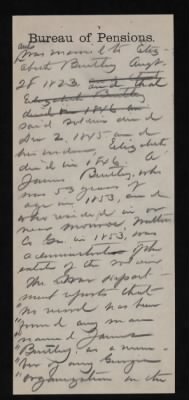 Bureau of Pensions.
and
was married to Eliz-
abeth Bentley Augt.
28 1823 and that
Elizabeth Bentley
died in 1846 and
said soldier died
Dec 2, 1845 and
his widow, Elizabeth
died in 1846. A
James Bentley, who
was 53 years of
age in 1853, and
who resided in or
near Monroe, Walton
Co Ga. in 1853, was
administrator of the
estate of the widow
The War Depart-
ment reports that
no record has been
"found any man
named James
Bentley as a mem-
ber of any Georgia
organization in the